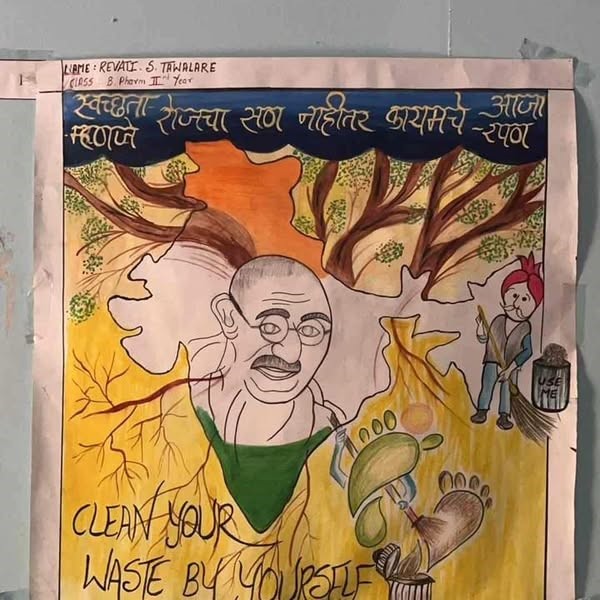 NAME : REVATI . S. TAWALARE
CLASS B. Pharm IInd Year
स्वच्छता रोजचा सण नाहीतर कायमचे आजा
म्हणजे -रपण
USE
ME
CLEAN YOUR
WASTE BY YOURSELF